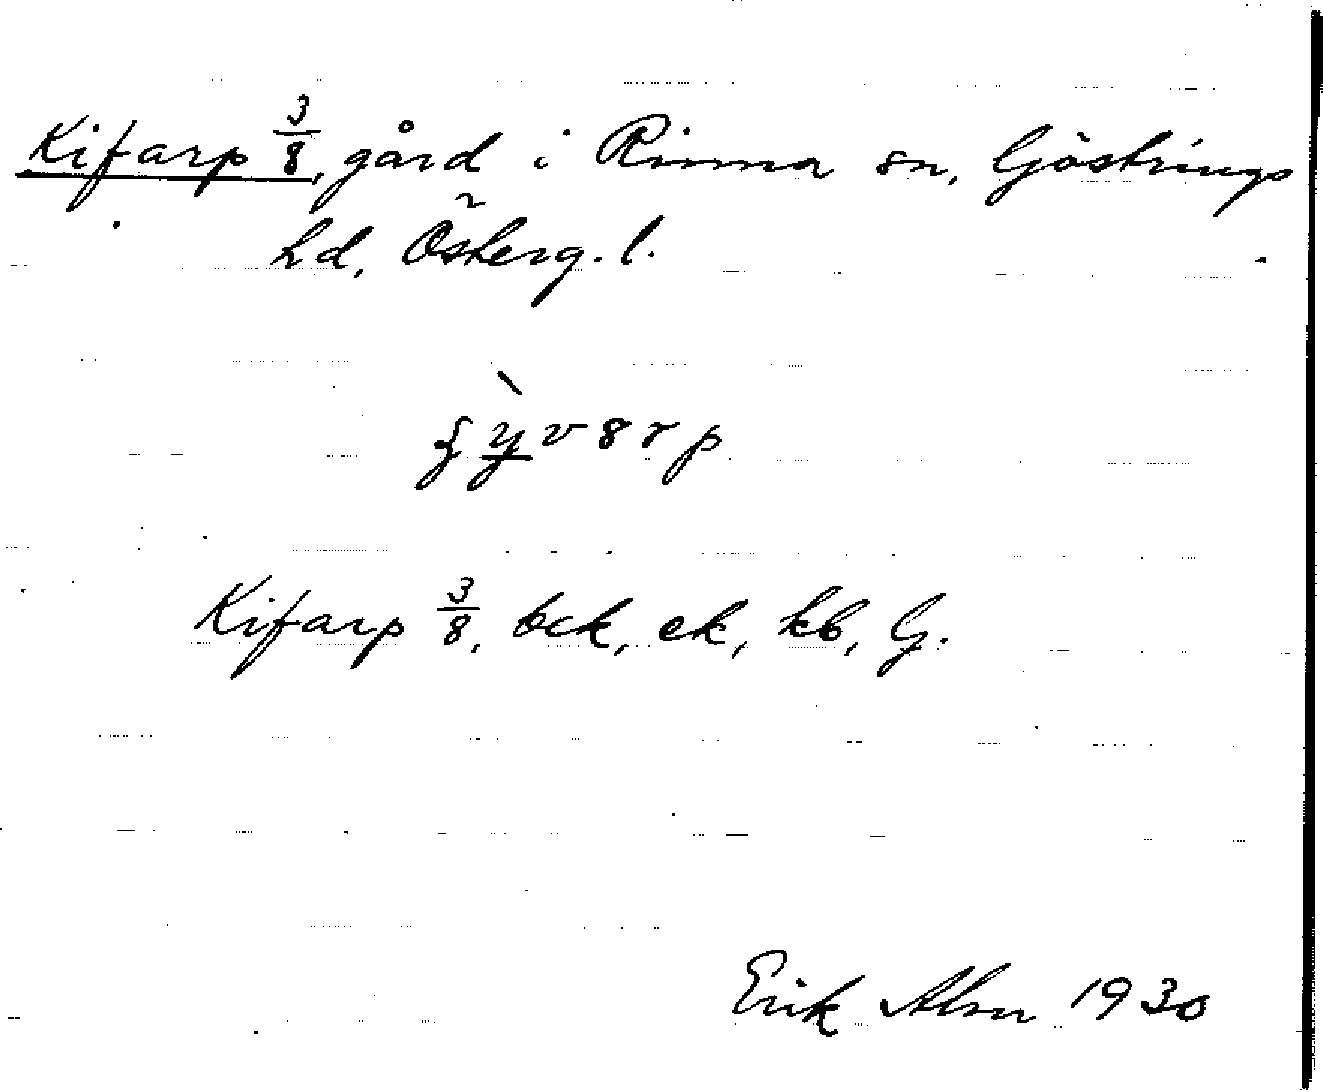 Kifarp 3/8, gård i Rinna sn, Göstrings
hd, Österg. l.
Kifarp 3/8, bck, ek, kb, G.
Erik Abrn 1930